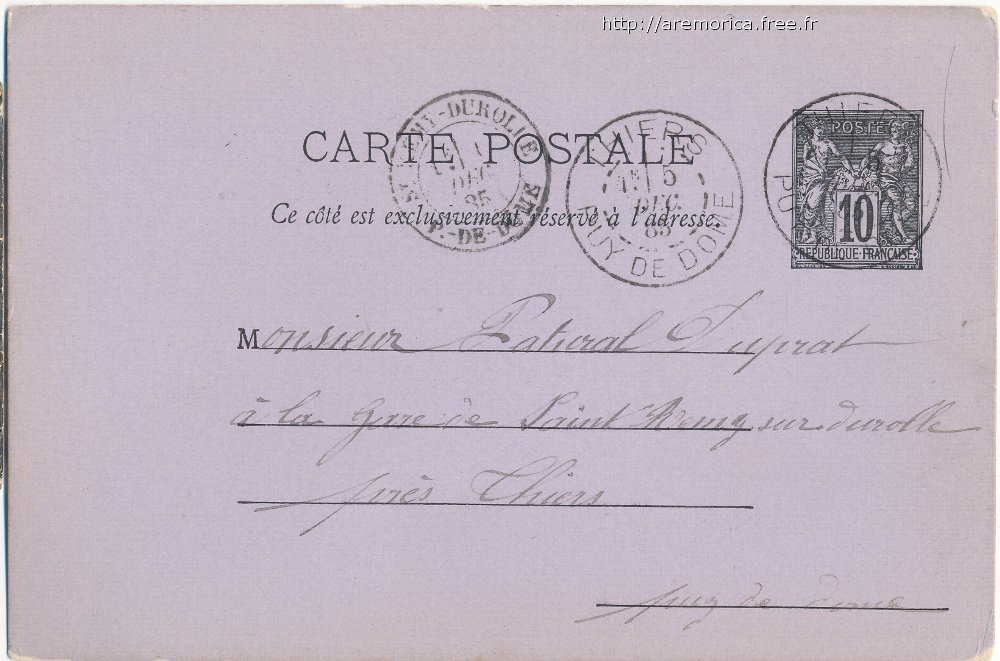 http://aremorica.free.fr
CARTE POSTALE
Ce côté est exclusivement réservé à l'adresse.
ST REMY-DUROLLE
DEC
85
P.-DE-DOME
THIERS
1E 5
DEC.
85
PUY DE DOME
THIERS
5
POSTE
10
REPUBLIQUE FRANÇAISE
Monsieur Patural Duprat
à la Gare de Saint Remy sur durolle
près Thiers
puy de dome